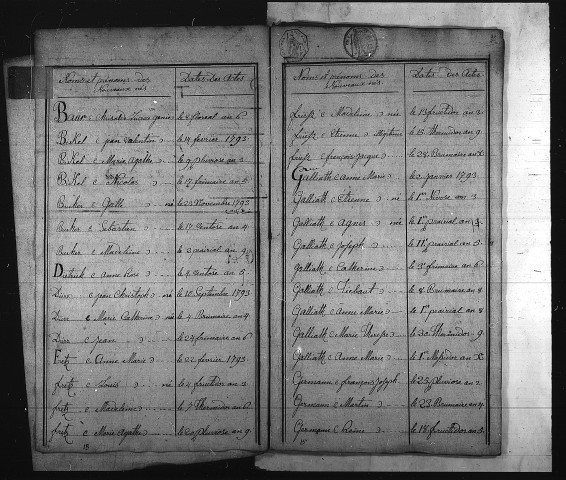 Noms et prénoms des
Nouveaux nés
Dates des Actes
Baur le 8 floreal an 6
BiKel ( jean Valentin ) le 14 fevrier 1793
BiKel ( Marie Agathe ) le 9 pluviose an 3
BiKel ( Nicolas ) le 17 frimaire an 5
Burker ( Gall ) né le 23 Novembre 1793
Burker ( Sebastien ) le 17 Ventose an 4
Burker ( Madeleine ) le 2 prairial an 9
Dietrich ( Anne Rose ) le 4 Ventose an 3
Dirr ( jean Christoph ) né le 10 Septembre 1793
Dirr ( Marie Catherine ) née le 4 Brumaire an 4
Dirr ( jean ) le 24 frimaire an 6
Fretz ( Anne Marie ) le 22 fevrier 1793
fretz ( Louis ) né le 4 fructidor an 2
fretz ( Madeleine ) le 7 Thermidor an 6
fretz ( Marie Agathe ) le 20 pluviose an 9
Noms et prénoms des
Nouveaux nés
Dates des Actes
frieß ( Madeleine ) le 13 fructidor an 3
frieß ( Etienne ) illegitime le 15 Thermidor an 9
frieß ( françois jacque ) le 28 Brumaire an X
Galliath ( Anne Marie ) le 2 janvier 1793
Galliath ( Etienne ) né le 1er Nivose an 3
Galliath ( Agnes ) née le 1er prairial an 4
Galliath ( Joseph ) le 11 prairial an 3
Galliath ( Catherine ) le 3 frimaire an 6
Galliath ( Thiebaut ) le 8 Brumaire an 8
Galliath ( Anne Marie ) le 1er prairial an 8
Galliath ( Marie Therese ) le 30 Thermidor 9
Galliath ( Anne Marie ) le 1er Messidor an X
Germann ( françois joseph le 25 pluviose an 2
Germann ( Martin ) le 23 Brumaire an 4
Germann ( Reine ) le 18 fructidor an 3